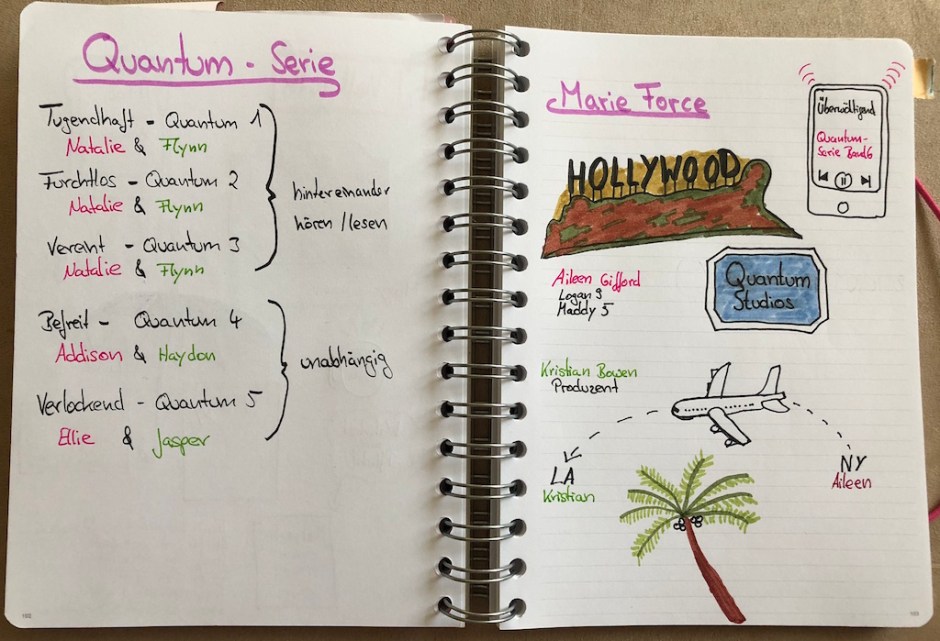 Quantum - Serie
Tugendhaft - Quantum 1
Natalie & Flynn
Furchtlos - Quantum 2
Natalie & Flynn
Vereint - Quantum 3
Natalie & Flynn
hintereinander
hören / lesen
Befreit - Quantum 4
Addison & Hayden
Verlockend - Quantum 5
Ellie & Jasper
unabhängig
Marie Force
Überwältigend
Quantum-
Serie Band 6
HOLLYWOOD
Aileen Gifford
Logan 9
Maddy 5
Quantum
Studios
Kristian Bowen
Produzent
LA
Kristian
NY
Aileen